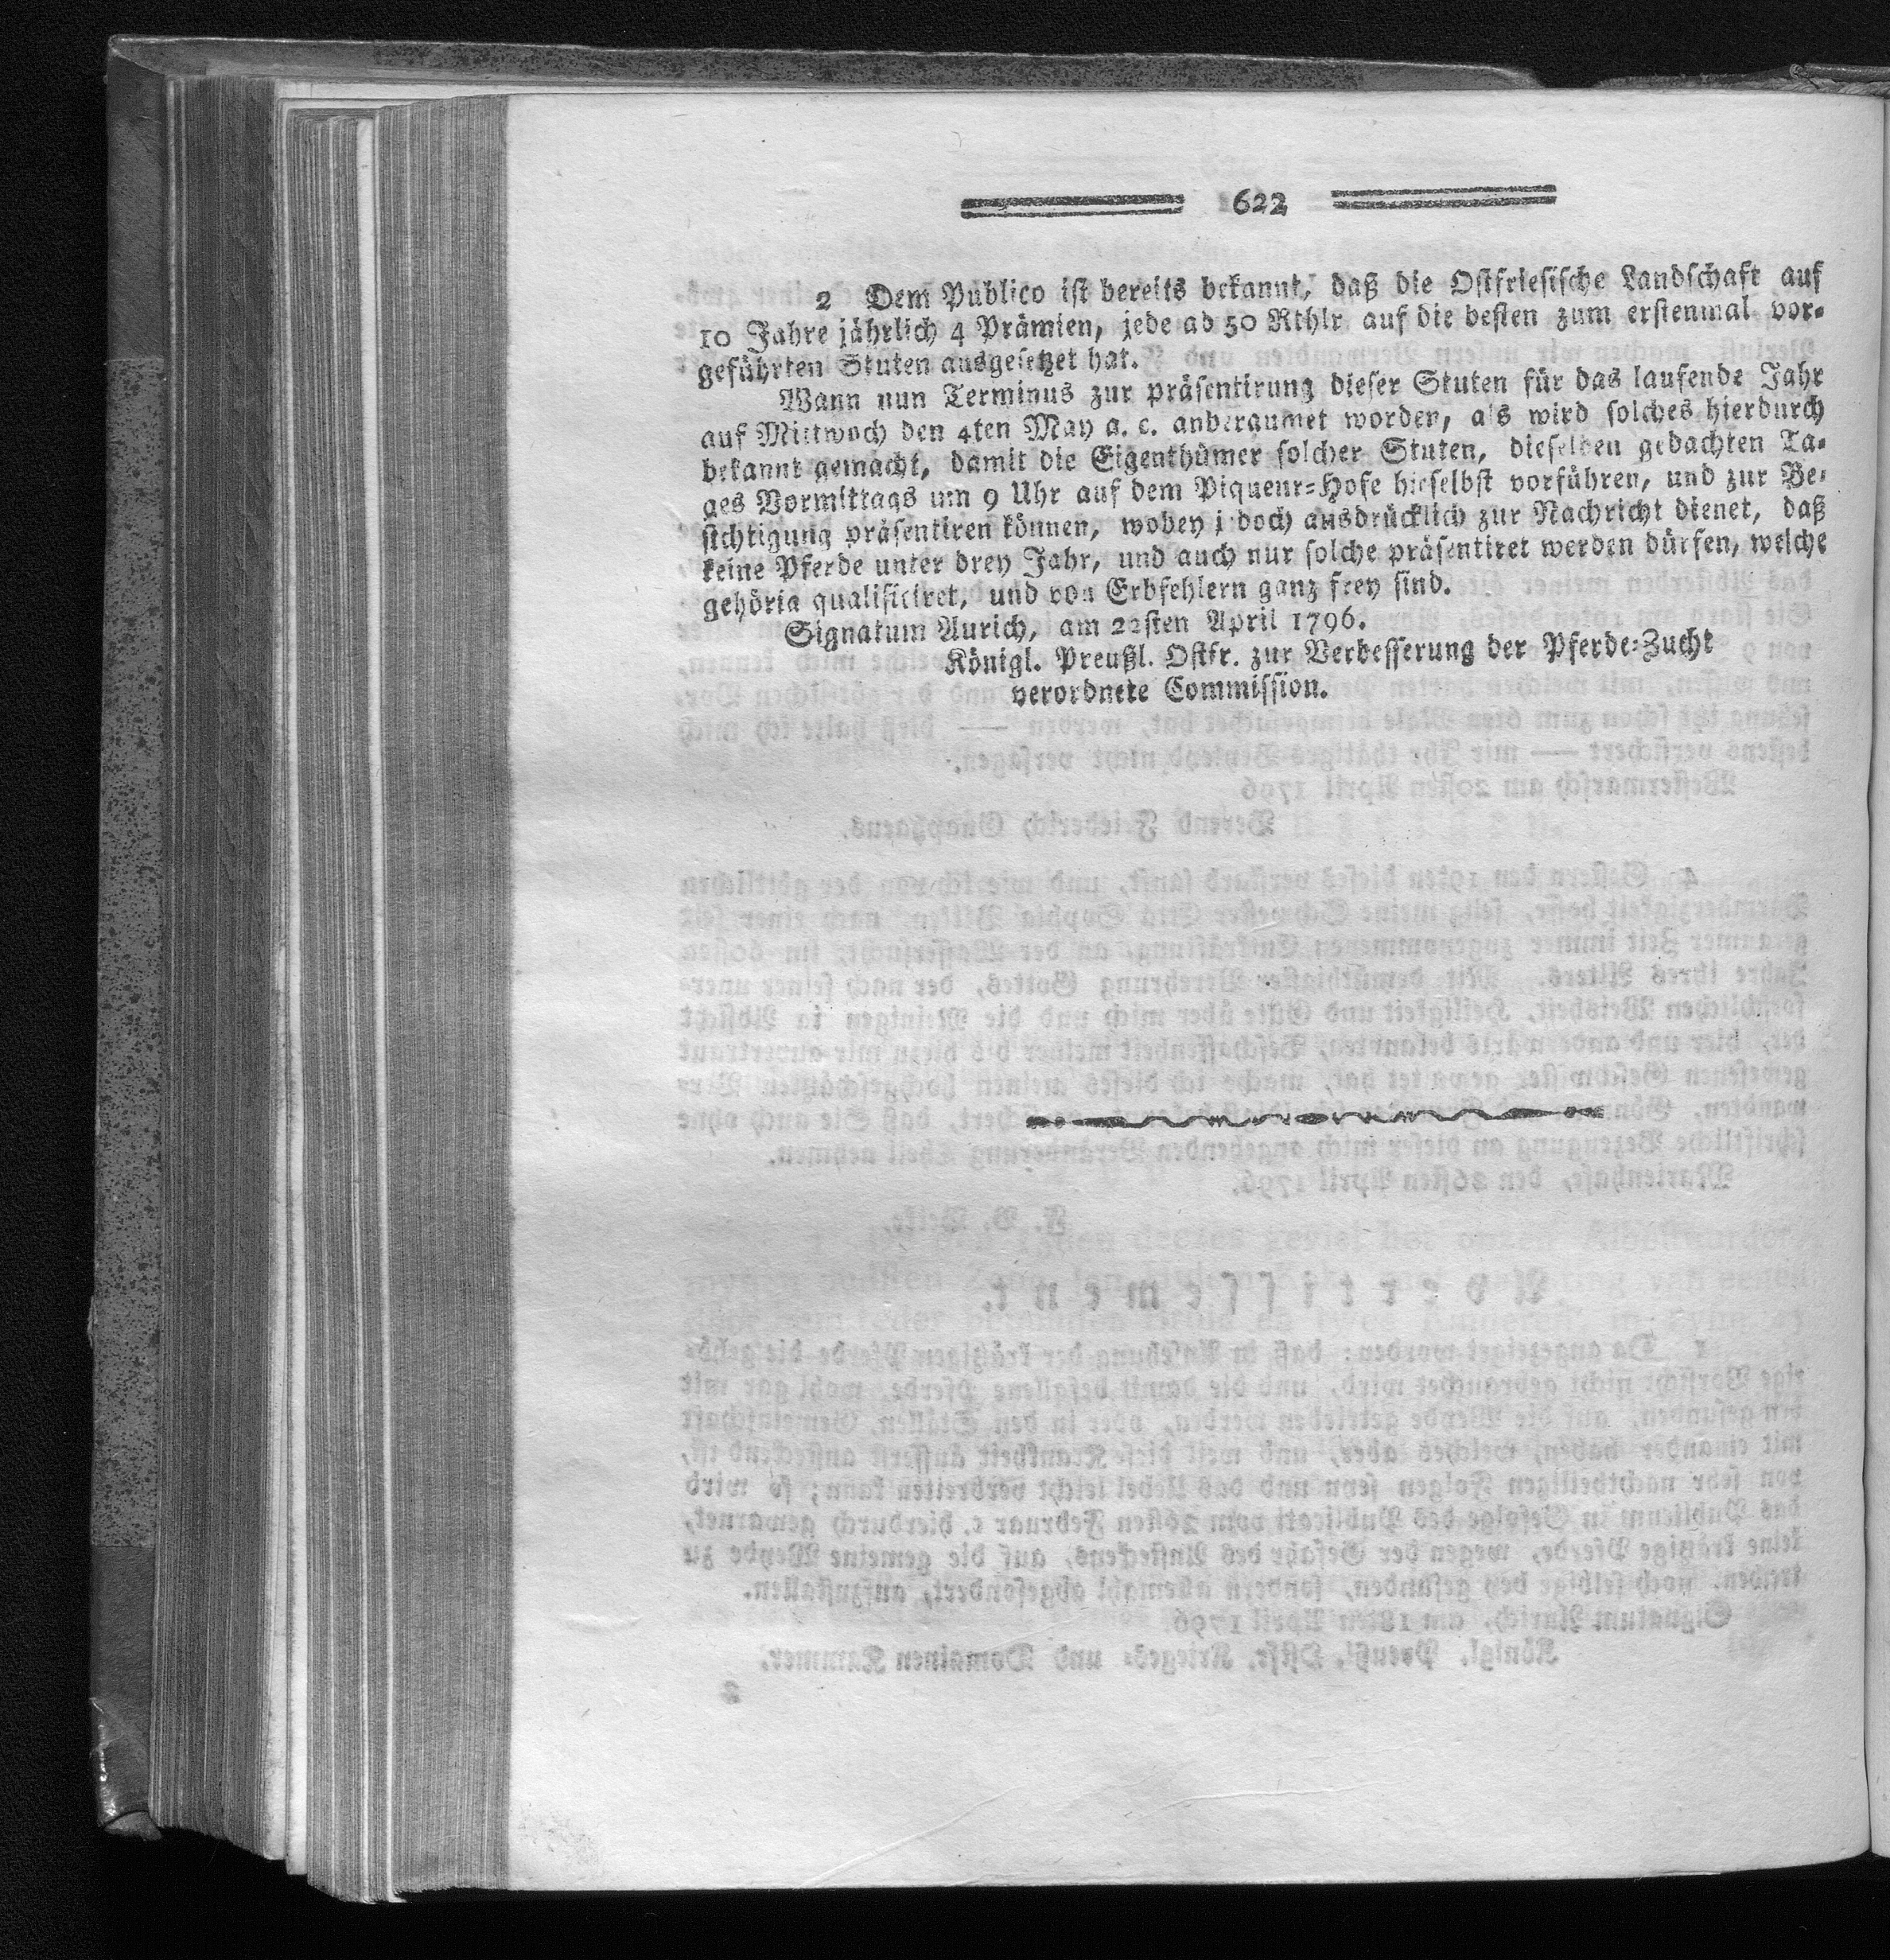 622
2 Dem Publico ist bereits bekannt, daß die Ostfriesische Landschaft auf
10 Jahre jährlich 4 Prämien, jede ad 50 Rthlr auf die besten zum erstenmal vor-
geführten Stuten ausgesetzet hat.
Wann nun Terminus zur präsentirung dieser Stuten für das laufende Jahr
auf Mittwoch den 4ten May a. c. anberaumet worden, als wird solches hierdurch
bekannt gemacht, damit die Eigenthümer solcher Stuten, dieselben gedachten Ta-
ges Vormittags um 9 Uhr auf dem Piqueur-Hofe hieselbst vorführen, und zur Be-
sichtigung präsentiren können, wobey jedoch ausdrücklich zur Nachricht dienet, daß
keine Pferde unter drey Jahr, und auch nur solche präsentiret werden dürfen, welche
gehörig qualificiret, und von Erbfehlern ganz frey sind.
Signatum Aurich, am 22sten April 1796.
Königl. Preußl. Ostfr. zur Verbesserung der Pferde-Zucht
verordnete Commission.